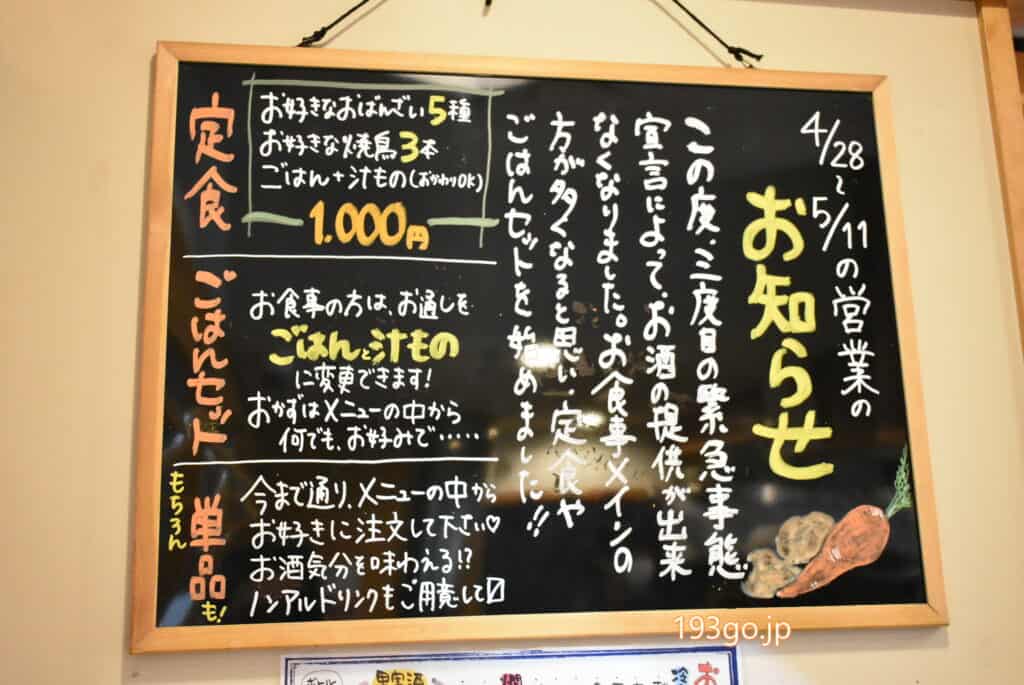 4/28〜5/11の営業の
お知らせ
この度、三度目の緊急事態
宣言によって、お酒の提供が出来
なくなりました。お食事メインの
方が多くなると思い、定食や
ごはんセットを始めました!!
定食
お好きなおばんざい5種
お好きな焼鳥3本
ごはん+汁もの(おかわりOK)
1.000円
ごはんセット
お食事の方は、お通しを
ごはんと汁もの
に変更できます!
おかずはメニューの中から
何でも、お好みで……
もちろん
単品も!
今まで通り、メニューの中から
お好きに注文して下さい♡
お酒気分を味わえる!?
ノンアルドリンクもご用意して〼
193go.jp